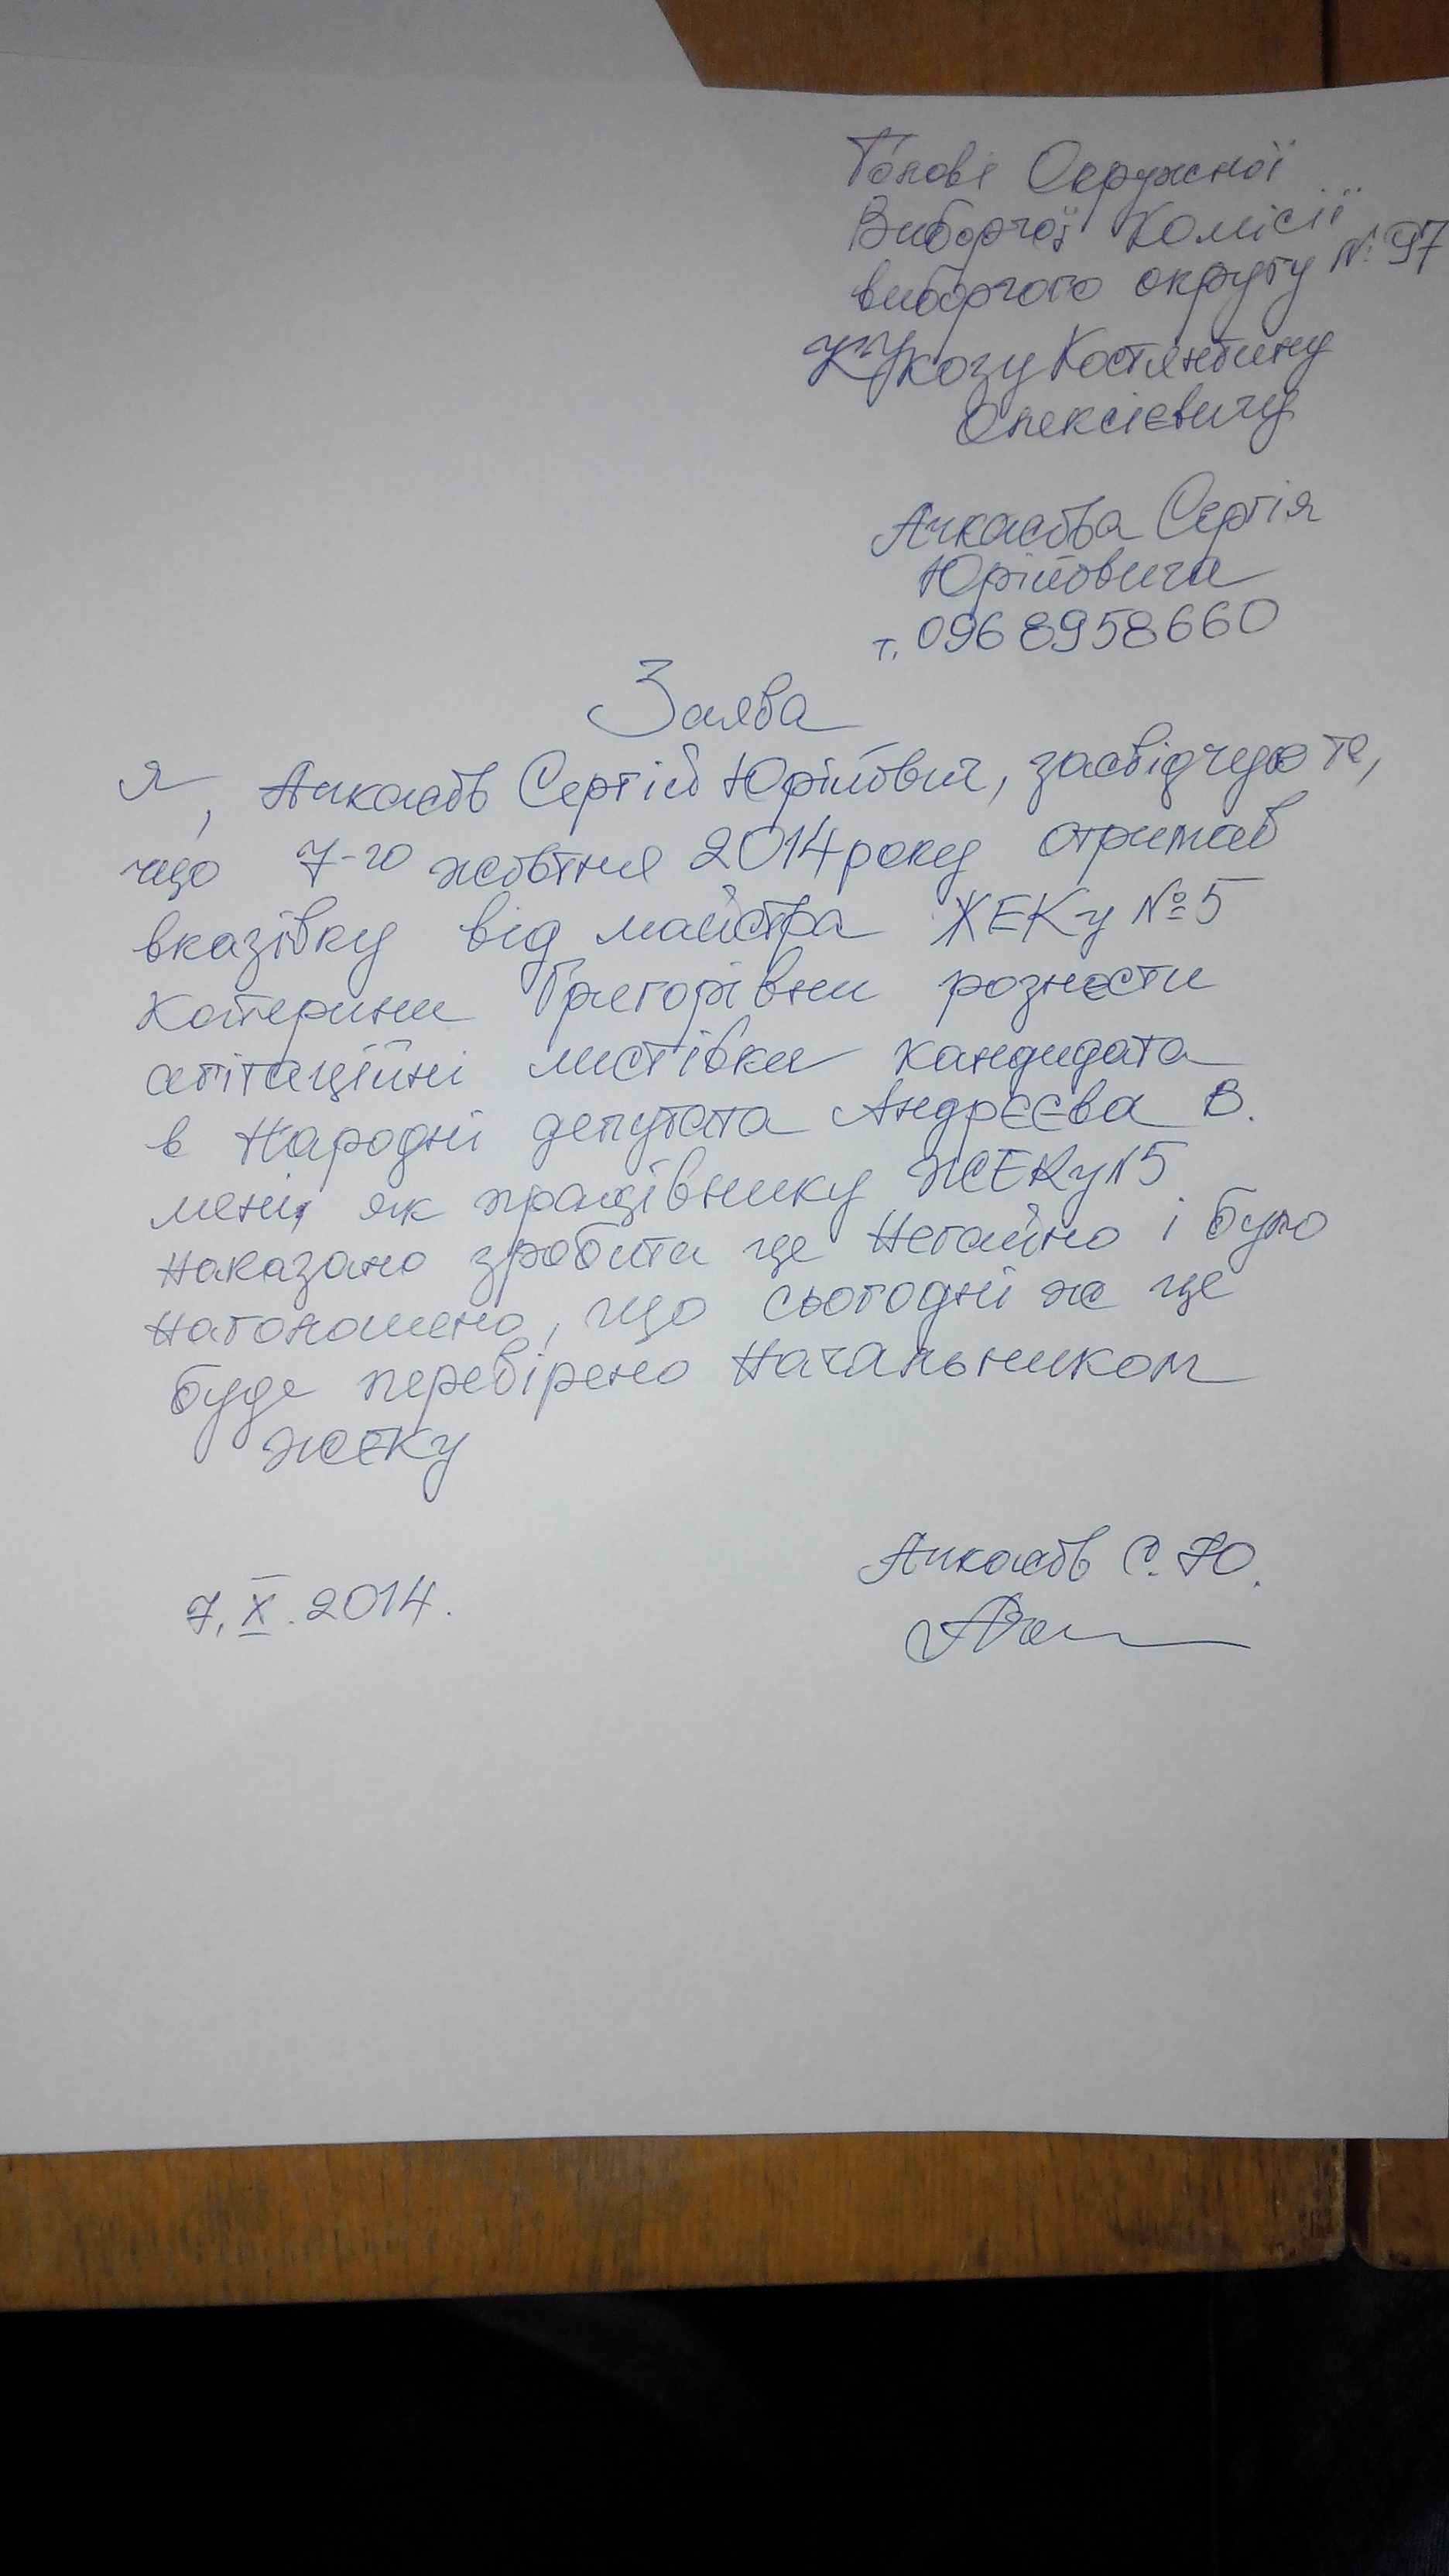 Голові Окружної
Виборчої Комісії
виборчого округу № 97
Костянтину
Олексієвичу
Сергія
Юрійовича
т. 0968958660
Заява
Я, Сергій Юрійович, засвідчую те,
що 7-го жовтня 2014 року отримав
вказівку від майстра ЖЕКу №5
Катерини Григорівни рознести
агітаційні листівки кандидата
в Народні депутата Андрєєва В.
мені, як працівнику ЖЕКу №5
наказано зробити це негайно і було
наголошено, що сьогодні же це
буде перевірено Начальником
ЖЕКу
С. Ю.
7. X. 2014.